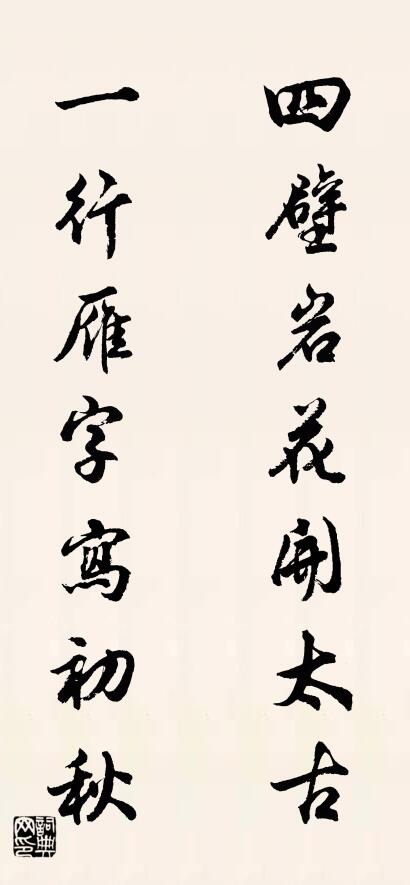 四壁岩花開太古
一行雁字寫初秋
詞典网印